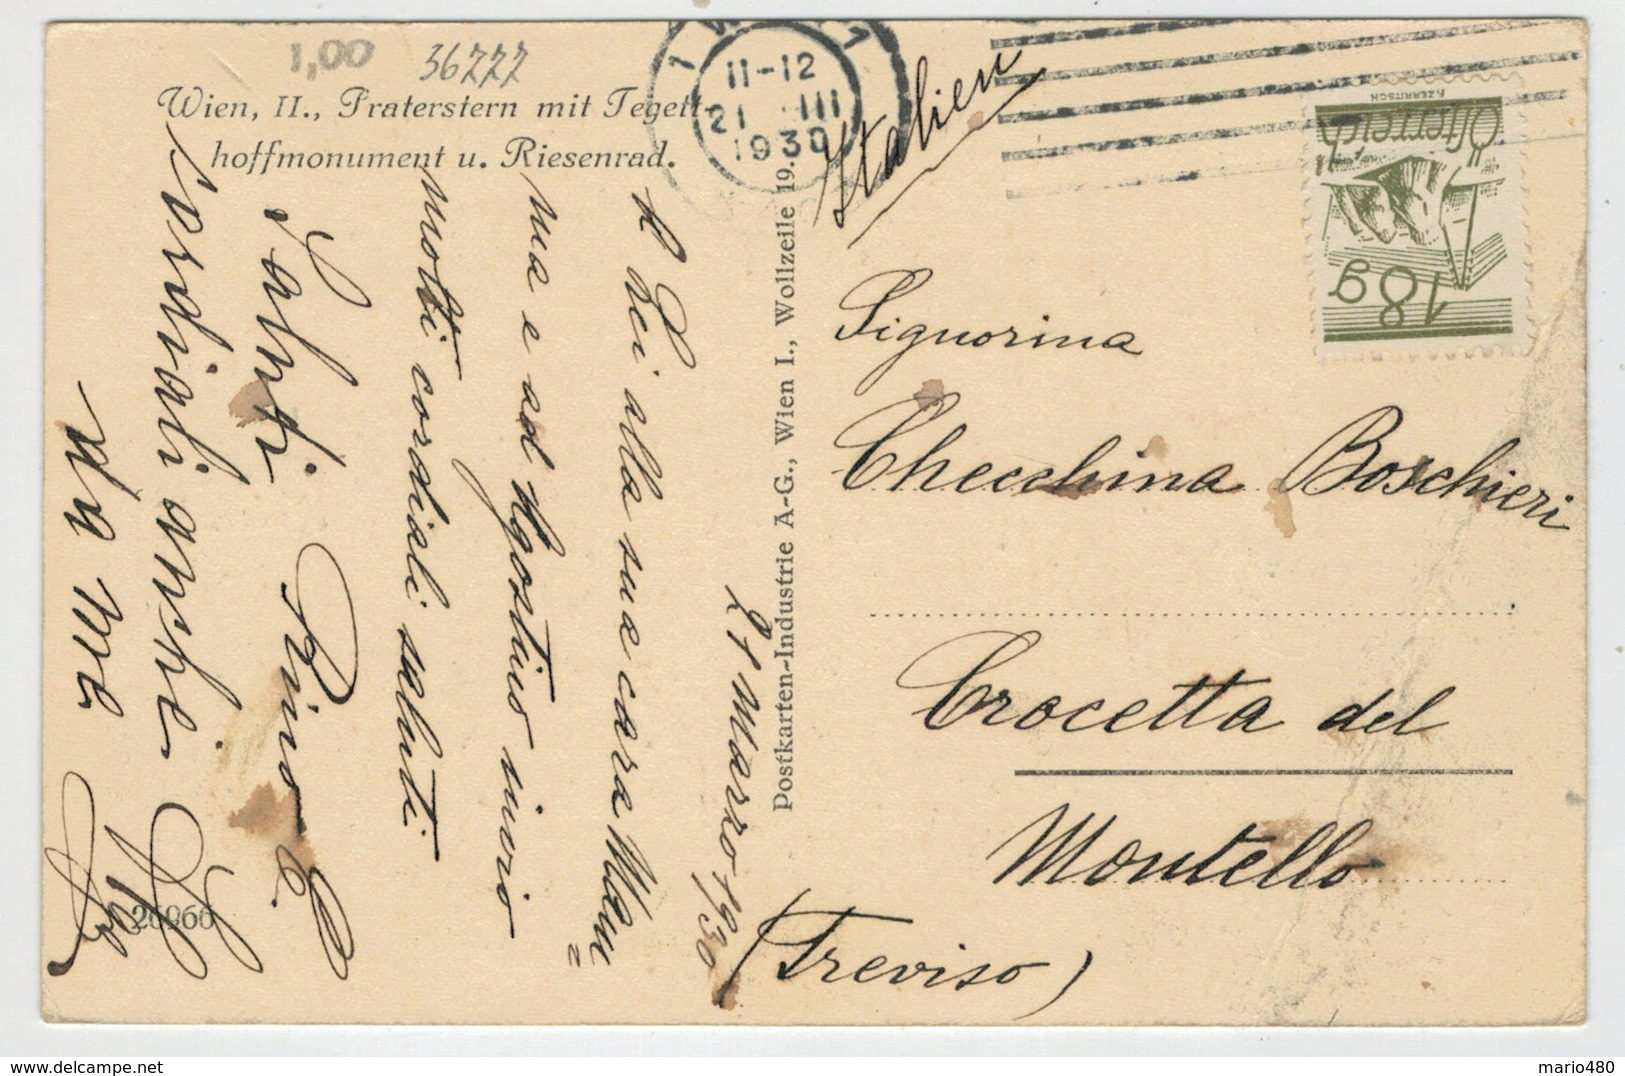 1,00
36777
Wien, II., Praterstern mit Tegett-
hoffmonument u. Riesenrad.
1 WIEN 1
11-12
21 III
1930
Italien
F.ZERRITSCH
Österreich
18g
Signorina
Checchina Boschieri
Crocetta del
Montello
(Treviso)
Postkarten-Industrie A-G., Wien I., Wollzeile 19.
21 Marzo 1930
A Lei alla sua cara Mam=
ma e ad Agostino invio
molti cordiali saluti
Saluti Rino C.
cordiali anche
da me
26966
mario480